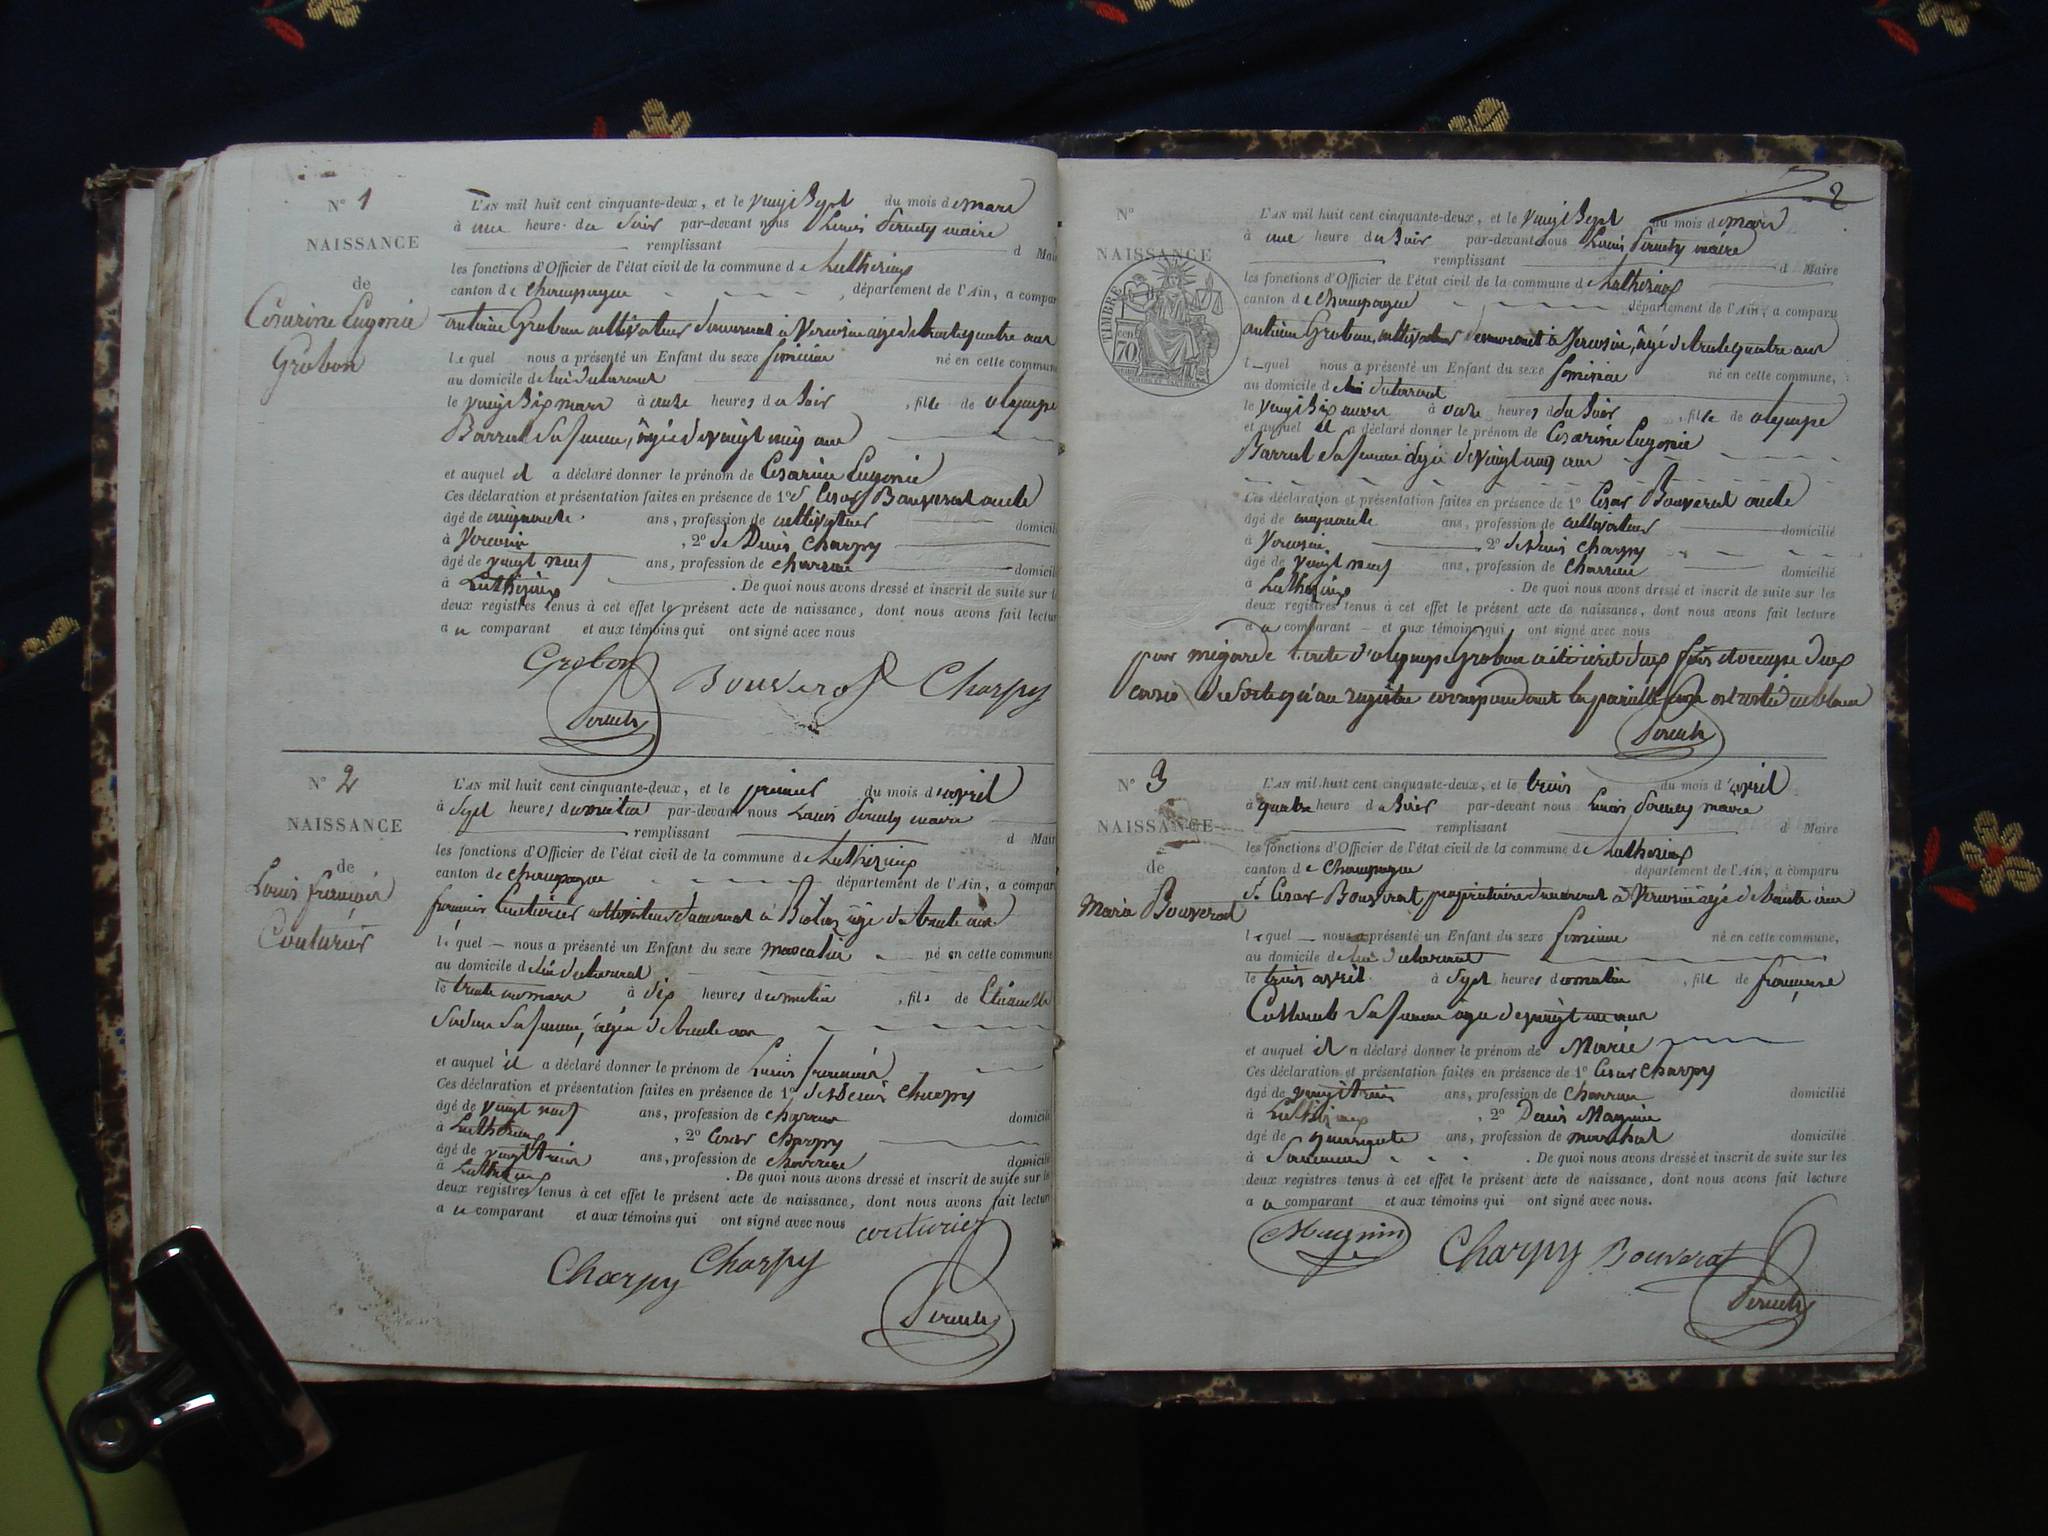 N° 1
NAISSANCE
de
Césarine Eugénie
Grobon
L'AN mil huit cent cinquante-deux, et le vingt Sept du mois de mars
à une heure du Soir par-devant nous Louis maire
remplissant d Maire
les fonctions d'Officier de l'état civil de la commune de Luthézieux
canton de Champagne, département de l'Ain, a comparu
antoine Grobon cultivateur demeurant à Vercosin agé de trente quatre ans
lequel nous a présenté un Enfant du sexe féminin né en cette commune
au domicile de lui déclarant
le vingt Six mars à onze heures du Soir, fille de olympe
Barrat Sa femme, âgée de vingt neuf ans
et auquel il a déclaré donner le prénom de Césarine Eugénie
Ces déclaration et présentation faites en présence de 1° de César Bouverat oncle
âgé de cinquante ans, profession de cultivateur domicilié
à Vercosin, 2° de Denis Charpy
âgé de vingt neuf ans, profession de charron domicilié
à Luthézieux. De quoi nous avons dressé et inscrit de suite sur les
deux registres tenus à cet effet le présent acte de naissance, dont nous avons fait lecture
au comparant et aux témoins qui ont signé avec nous
Grobon Bouverat Charpy
N° 2
NAISSANCE
de
Louis françois
Couturier
L'AN mil huit cent cinquante-deux, et le premier du mois d'avril
à Sept heures du matin par-devant nous Louis maire
remplissant d Maire
les fonctions d'Officier de l'état civil de la commune de Luthézieux
canton de Champagne département de l'Ain, a comparu
françois Couturier cultivateur demeurant à âgé de trente ans
lequel nous a présenté un Enfant du sexe masculin né en cette commune
au domicile de lui déclarant
le trente un mars à Six heures du matin, fils de Etiennette
Sa femme, âgée de trente ans
et auquel il a déclaré donner le prénom de Louis françois
Ces déclaration et présentation faites en présence de 1° de Denis Charpy
âgé de vingt neuf ans, profession de charron domicilié
à Luthézieux, 2° César Charpy
âgé de vingt trois ans, profession de charron domicilié
à Luthézieux. De quoi nous avons dressé et inscrit de suite sur les
deux registres tenus à cet effet le présent acte de naissance, dont nous avons fait lecture
au comparant et aux témoins qui ont signé avec nous couturier
Charpy Charpy
2
N°
NAISSANCE
TIMBRE
70
L'AN mil huit cent cinquante-deux, et le vingt Sept du mois de mars
à une heure du Soir par-devant nous Louis maire
remplissant d Maire
les fonctions d'Officier de l'état civil de la commune de Luthézieux
canton de Champagne département de l'Ain, a comparu
antoine Grobon, cultivateur demeurant à Vercosin, âgé de trente quatre ans
lequel nous a présenté un Enfant du sexe féminin né en cette commune,
au domicile de lui déclarant
le vingt Six mars à onze heures du Soir, fille de olympe
et auquel il a déclaré donner le prénom de Césarine Eugénie
Barrat Sa femme âgée de vingt neuf ans
Ces déclaration et présentation faites en présence de 1° César Bouverat oncle
âgé de cinquante ans, profession de cultivateur domicilié
à Vercosin, 2° de Denis Charpy
âgé de vingt neuf ans, profession de charron domicilié
à Luthézieux. De quoi nous avons dressé et inscrit de suite sur les
deux registres tenus à cet effet le présent acte de naissance, dont nous avons fait lecture
au comparant et aux témoins qui ont signé avec nous
par mégarde l'acte d'olympe Grobon a été écrit deux fois et occupe deux
cases de sorte qu'au registre correspondant la pareille case est restée en blanc
N° 3
NAISSANCE
de
Marie Bouverat
L'AN mil huit cent cinquante-deux, et le trois du mois d'avril
à quatre heure du Soir par-devant nous Louis maire
remplissant d Maire
les fonctions d'Officier de l'état civil de la commune de Luthézieux
canton de Champagne département de l'Ain, a comparu
Sr César Bouverat propriétaire demeurant à Vercosin agé de trente ans
lequel nous a présenté un Enfant du sexe féminin né en cette commune,
au domicile de lui déclarant
le trois avril à Sept heures du matin, fille de françoise
Sa femme agée de vingt un ans
et auquel il a déclaré donner le prénom de Marie
Ces déclaration et présentation faites en présence de 1° César Charpy
âgé de vingt trois ans, profession de charron domicilié
à Luthézieux, 2° Denis Magnin
âgé de quarante ans, profession de maréchal domicilié
à. De quoi nous avons dressé et inscrit de suite sur les
deux registres tenus à cet effet le présent acte de naissance, dont nous avons fait lecture
au comparant et aux témoins qui ont signé avec nous.
Magnin Charpy Bouverat